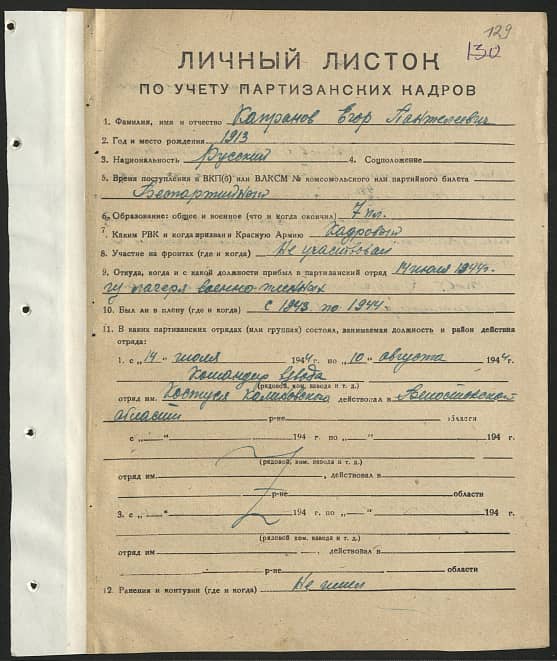 129
130
ЛИЧНЫЙ ЛИСТОК
ПО УЧЕТУ ПАРТИЗАНСКИХ КАДРОВ
1. Фамилия, имя и отчество Капранов Егор Пантелеевич
2. Год и место рождения 1913
3. Национальность Русский 4. Соцположение
5. Время поступления в ВКП(б) или ВЛКСМ № комсомольского или партийного билета
Беспартийный
6. Образование: общее и военное (что и когда окончил) 7 кл.
7. Каким РВК и когда призван в Красную Армию Кадровый
8. Участие на фронтах (где и когда) Не участвовал
9. Откуда, когда и с какой должности прибыл в партизанский отряд 14 июля 1944г.
из лагеря военно-пленных
10. Был ли в плену (где и когда) с 1943 по 1944.
11. В каких партизанских отрядах (или группах) состоял, занимаемая должность и район действия
отряда:
1. с „14“ июля 1944 г. по „10“ августа 1944 г.
Командир взвода
(рядовой, ком. взвода и т. д.)
отряд им. Костуся Калиновского действовал в Белостокской
области р-не области
с „ “ 194 г. по „ “ 194 г.
(рядовой, ком. взвода и т. д.)
отряд им. , действовал в
р-не области
3. с „ “ 194 г. по „ “ 194 г.
(рядовой, ком. взвода и т. д.)
отряд им. , действовал в
р-не области
12. Ранения и контузии (где и когда) Не имел